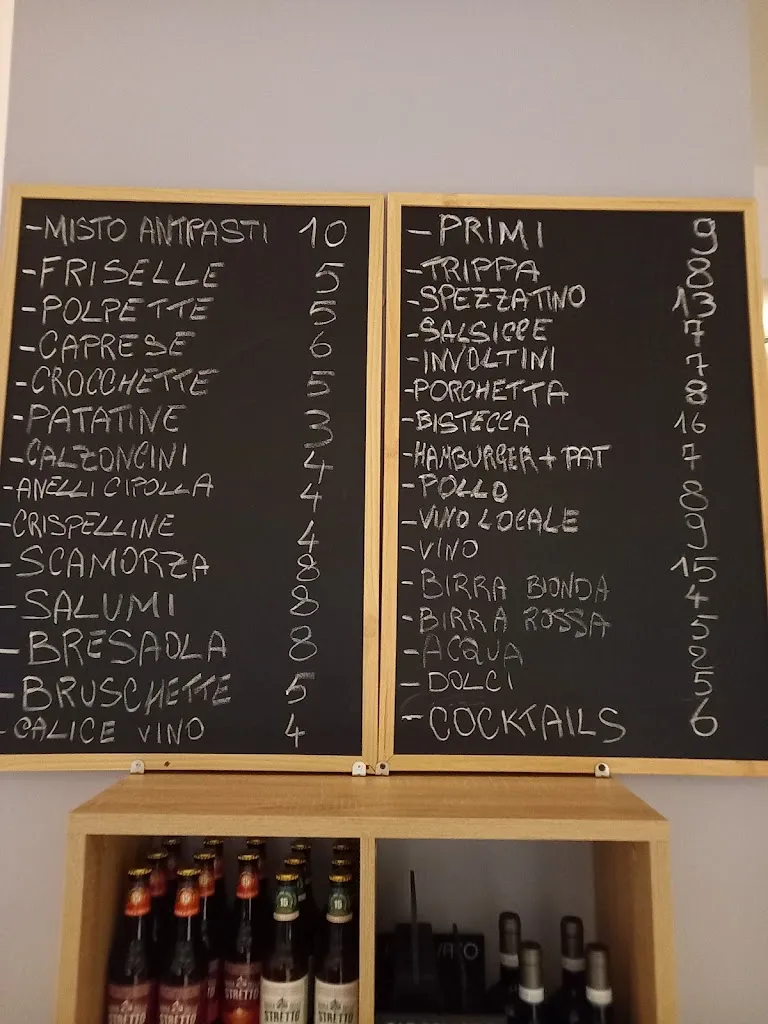 -MISTO ANTIPASTI 10
-FRISELLE 5
-POLPETTE 5
-CAPRESE 6
-CROCCHETTE 5
-PATATINE 3
-CALZONCINI 4
-ANELLI CIPOLLA 4
-CRISPELLINE 4
-SCAMORZA 8
-SALUMI 8
-BRESAOLA 8
-BRUSCHETTE 5
-CALICE VINO 4
-PRIMI 9
-TRIPPA 8
-SPEZZATINO 13
-SALSICCE 7
-INVOLTINI 7
-PORCHETTA 8
-BISTECCA 16
-HAMBURGER+PAT 7
-POLLO 8
-VINO LOCALE 9
-VINO 15
-BIRRA BIONDA 4
-BIRRA ROSSA 5
-ACQUA 2
-DOLCI 5
-COCKTAILS 6
STRETTO
STRETTO
STRETTO
STRETTO